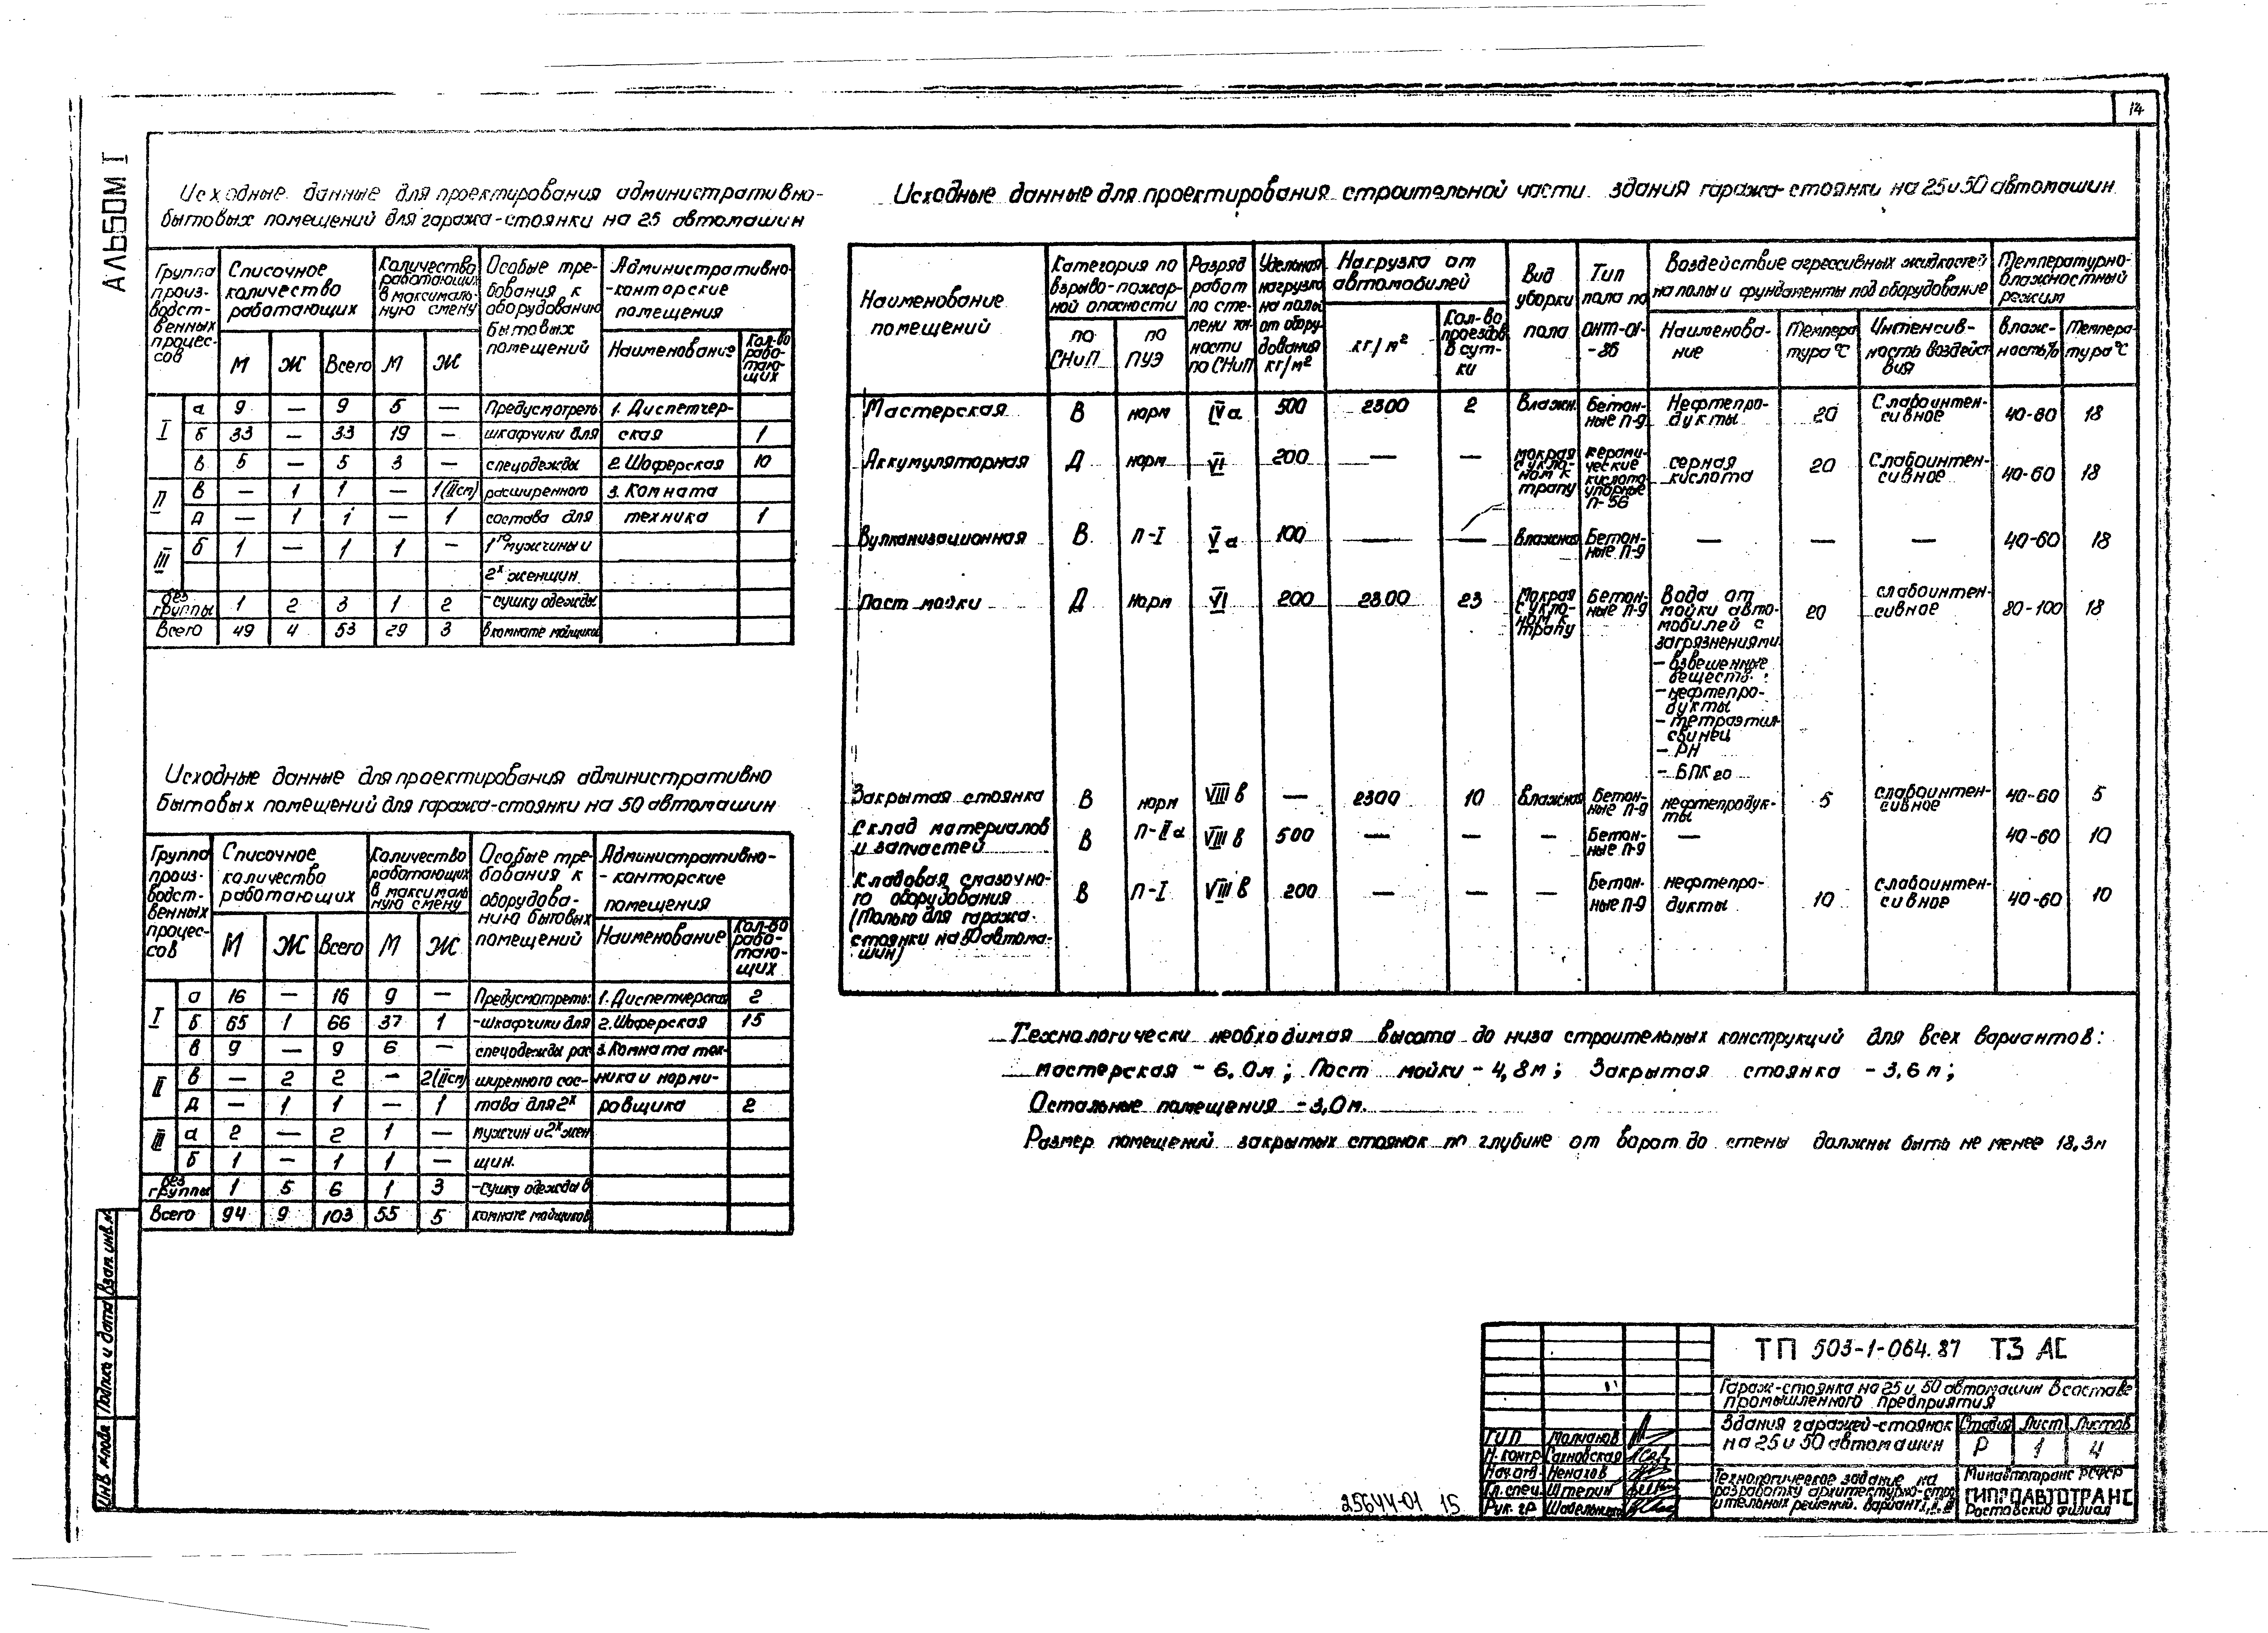 14
АЛЬБОМ I
Исходные данные для проектирования административно-
бытовых помещений для гаража-стоянки на 25 автомашин
Группа произ-водст-венных процес-сов | Списочное количество работающих | Количество работающих в максималь-ную смену | Особые тре-бования к оборудованию бытовых помещений | Административно-конторские помещения
М | Ж | Всего | М | Ж | Наименование | Кол-во рабо-таю-щих
I | а | 9 | — | 9 | 5 | — | Предусмотреть | 1. Диспетчер-
б | 33 | — | 33 | 19 | — | шкафчики для | ская | 1
в | 5 | — | 5 | 3 | — | спецодежды | 2. Шоферская | 10
II | в | — | 1 | 1 | — | 1(IIсм) | расширенного | 3. Комната
д | — | 1 | 1 | — | 1 | состава для | техника | 1
III | б | 1 | — | 1 | 1 | — | 1го мужчины и
2х женщин
без группы | 1 | 2 | 3 | 1 | 2 | -сушку одежды
Всего | 49 | 4 | 53 | 29 | 3 | в комнате мойщиков
Исходные данные для проектирования административно
бытовых помещений для гаража-стоянки на 50 автомашин
Группа произ-водст-венных процес-сов | Списочное количество работающих | Количество работающих в максималь ную смену | Особые тре-бования к оборудова-нию бытовых помещений | Административно--конторские помещения
М | Ж | Всего | М | Ж | Наименование | Кол-во рабо-таю-щих
I | а | 16 | — | 16 | 9 | — | Предусмотреть: | 1. Диспетчерская | 2
б | 65 | 1 | 66 | 37 | 1 | -шкафчики для | 2. Шоферская | 15
в | 9 | — | 9 | 6 | — | спецодежды рас | 3. Комната тех-
II | в | — | 2 | 2 | — | 2(IIсм) | ширенного сос- | ника и норми-
д | — | 1 | 1 | — | 1 | тава для 2х | ровщика | 2
III | а | 2 | — | 2 | 1 | — | мужчин и 2х жен
б | 1 | — | 1 | 1 | — | щин.
без группы | 1 | 5 | 6 | 1 | 3 | -сушку одежды в
Всего | 94 | 9 | 103 | 55 | 5 | комнате мойщиков
Исходные данные для проектирования строительной части здания гаража-стоянки на 25 и 50 автомашин
Наименование помещений | Категория по взрыво-пожар-ной опасности | Разряд работ по сте-пени точ-ности по СНиП | Удельная нагрузка на полы от обору-дования кг/м² | Нагрузка от автомобилей | Вид уборки пола | Тип пола по ОНТ-01--86 | Воздействие агрессивных жидкостей на полы и фундаменты под оборудование | Температурно-влажностный режим
по СНиП | по ПУЭ | кг/м² | Кол-во проездов в сут-ки | Наименова-ние | Темпера тура °С | Интенсив-ность воздейст вия | Влаж-ность% | Темпера-тура °С
Мастерская | В | норм | IVа | 500 | 2300 | 2 | Влажн. | Бетон-ные П-9 | Нефтепро-дукты | 20 | Слабоинтен-сивное | 40-60 | 18
Аккумуляторная | Д | норм | VI | 200 | — | — | мокрая с укло-ном к трапу | керами-ческие кислото упорные П-56 | серная кислота | 20 | Слабоинтен-сивное | 40-60 | 18
Вулканизационная | В | П-I | Vа | 100 | — | — | Влажная | Бетон-ные П-9 | — | — | — | 40-60 | 18
Пост мойки | Д | норм | VI | 200 | 2300 | 23 | Мокрая с укло-ном к трапу | Бетон-ные П-9 | Вода от мойки авто-мобилей с загрязнениями: - взвешенные веществ. - нефтепро-дукты - тетраэтил-свинец - РН - БПК20 | 20 | слабоинтен-сивное | 80-100 | 18
Закрытая стоянка | В | норм | VIIIв | — | 2300 | 10 | Влажная | Бетон-ные П-9 | нефтепродук-ты | 5 | слабоинтен-сивное | 40-60 | 5
Склад материалов и запчастей | В | П-IIа | VIIIв | 500 | — | — | — | Бетон-ные П-9 | — | 40-60 | 10
Кладовая смазочно-го оборудования (только для гаража-стоянки на 50 автома-шин) | В | П-I | VIIIв | 200 | — | — | — | Бетон-ные П-9 | нефтепро-дукты | 10 | слабоинтен-сивное | 40-60 | 10
Технологически необходимая высота до низа строительных конструкций для всех вариантов:
мастерская - 6,0м; Пост мойки - 4,8м; Закрытая стоянка - 3,6м;
Остальные помещения - 3,0м.
Размер помещений закрытых стоянок по глубине от ворот до стены должны быть не менее 18,3м
ТП 503-1-064.87 ТЗ АС
Гараж-стоянка на 25 и 50 автомашин в составе
промышленного предприятия
Здания гаражей-стоянок
на 25 и 50 автомашин
Стадия | Лист | Листов
Р | 1 | 4
Технологическое задание на
разработку архитектурно-стро
ительных решений. Вариант I, II, III
Минавтотранс РСФСР
ГИПРОАВТОТРАНС
Ростовский филиал
ГИП Молчанов
Н. контр Сахновская
Нач. отд Ненахов
Гл. спец. Штерин
Рук. гр
25644-01 15
Инв. № подл
Подпись и дата
Взам. инв. №